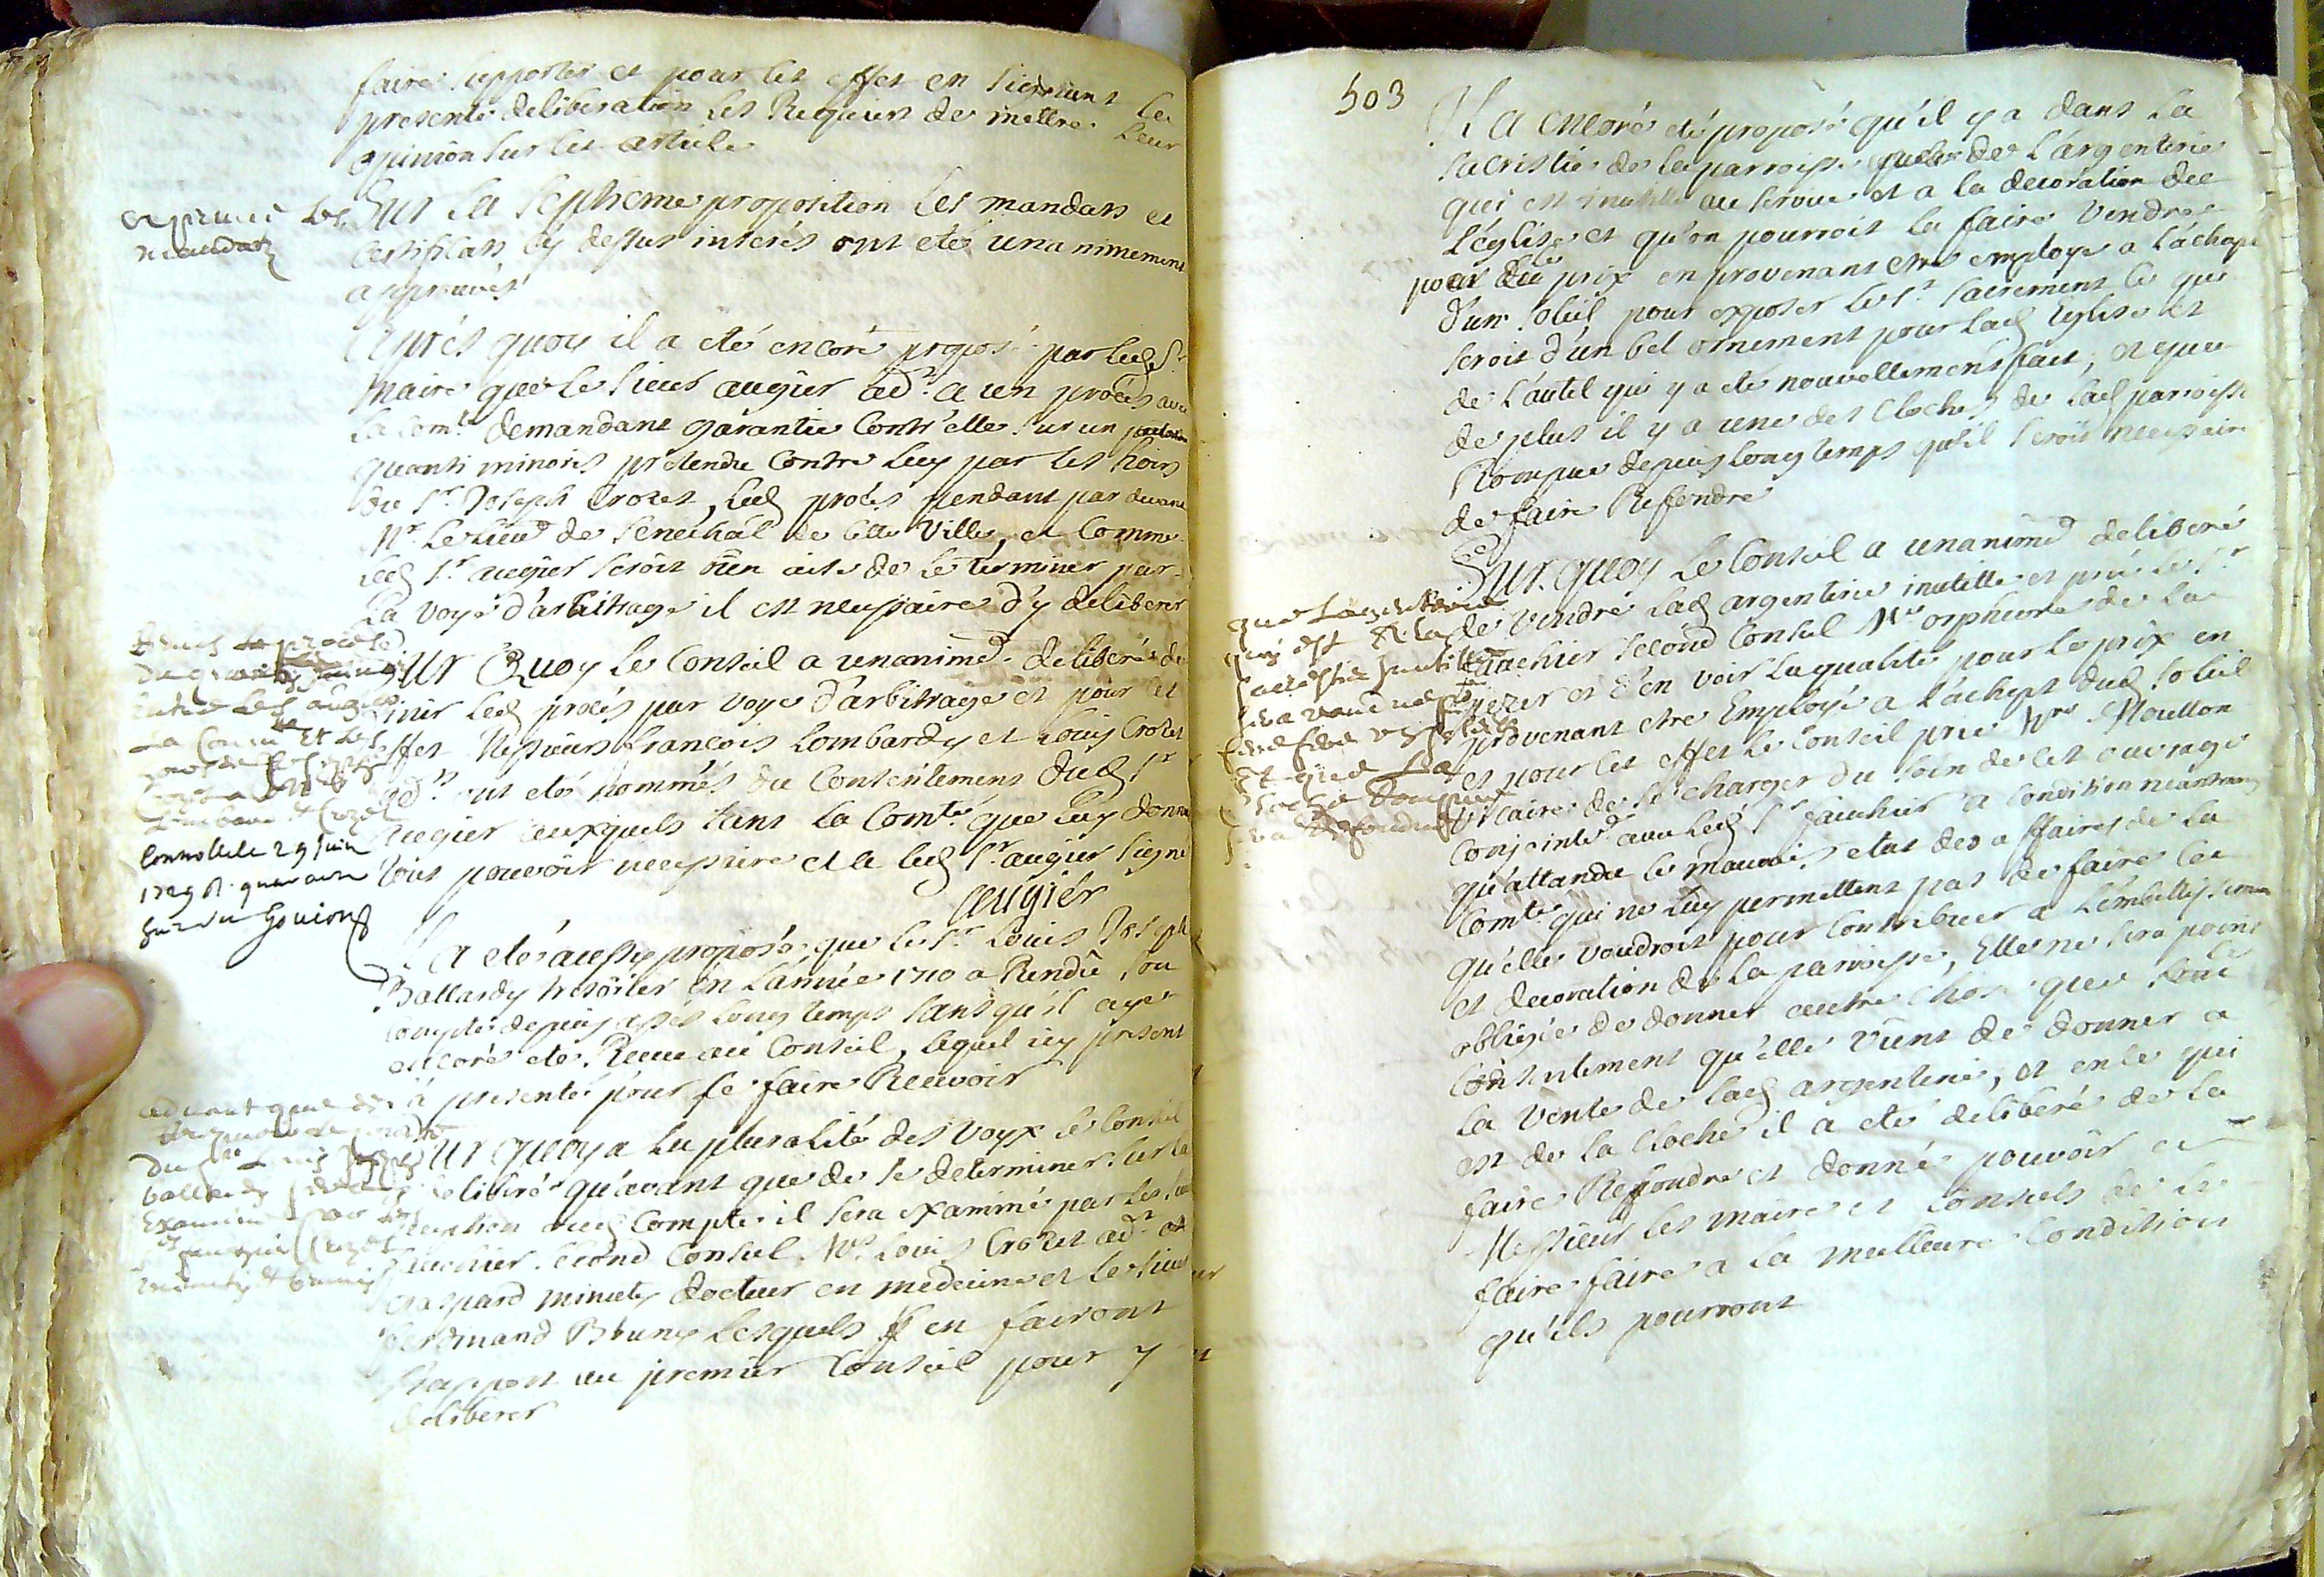 faire apporter et pour cet effet en signant la
presente deliberation les Requiert de mettre leur
opinion sur cet article
approuvé les
mandats
Sur la septieme proposition les mandats et
certificats cy dessus inserés ont eté unanimement
approuvés
Aprés quoy il a eté encore proposé par led Sr
Maire que le sieur augier adt a un procés avec
la Comté demandant garantie Contr'elle sur un
quanti minoris prétendu Contre luy par les hoirs
du Sr Joseph Crozet, led procés pendant par devant
Mr le lieut de senechal de cette Ville, et Comme
led Sr augier seroit bien aise de le terminer par
la voye d'arbitrage il est necessaire d'y deliberer
Sur Quoy le Conseil a unanimt deliberé de
finir led procés par voye d'arbitrage et pour cet
effet Messieurs francois Lombardy et Louis Crozet
adts ont eté nommés du Consentement dud Sr
augier auxquels tant la Comté que luy donne
tout pouvoir necessaire et a led Sr augier signé
augier
Controllé le 29 juin
1729 R. quarante
Il a eté aussy proposé que le Sr Louis Joseph
Ballardy tresorier en l'année 1710 a Rendu son
compte depuis assés long temps sans qu'il aye
encore eté Receu au Conseil, lequel icy present
a presenté pour se faire Recevoir
Sur quoy a la pluralité des Voyx le Conseil
deliberé qu'avant que de se determiner sur la
reception dud Compte il sera examiné par les
fauchier second Consul, Me Louis Crozet adt et
gaspard minuty docteur en medecine et le sieur
ferdinand Bruny lesquels en fairont
Rapport au premier Conseil pour y
deliberer
503
Il a encore eté proposé qu'il y a dans la
sacristie de la parroisse de l'argenterie
qui est inutille au service et a la decoration de
l'église et qu'on pourroit la faire vendre
pour le prix en provenant etre employé a l'achept
d'un soleil pour exposer le St sacrement ce qui
seroit d'un bel ornement pour lad Eglise et
de l'autel qui y a eté nouvellement fait, et que
de plus il y a une des Cloches de lad parroisse
Rompue depuis long temps qu'il seroit necessaire
de faire Refondre
Sur quoy le Conseil a unanimt deliberé
que l'argenterie
qui est a la
sacristie inutille
sera vendue
de vendre lad argenterie inutille et prié le Sr
fauchier second Consul Me orpheuvre de la
pezer et d'en voir la qualité pour le prix en
provenant etre Employé a l'achept dud soleil
et que la
cloche rompue
sera Refondue
et pour cet effet le Conseil prie Mre Moutton
vicaire de se charger du soin de cet ouvrage
conjointt avec led Sr fauchier a condition neantmoins
qu'attandu le mauvais etat des affaires de la
Comté qui ne luy permettent pas de faire ce
qu'elle voudroit pour contribuer a l'embellissement
et decoration de la parroisse, Elle ne sera point
obligée de donner autre chose que le
consentement qu'elle vient de donner a
la vente de lad argenterie, et en ce qui
est de la Cloche il a eté deliberé de la
faire Reffondre et donné pouvoir a
Messieurs les maire et Consuls de le
faire faire a la meilleure Condition
qu'ils pourront